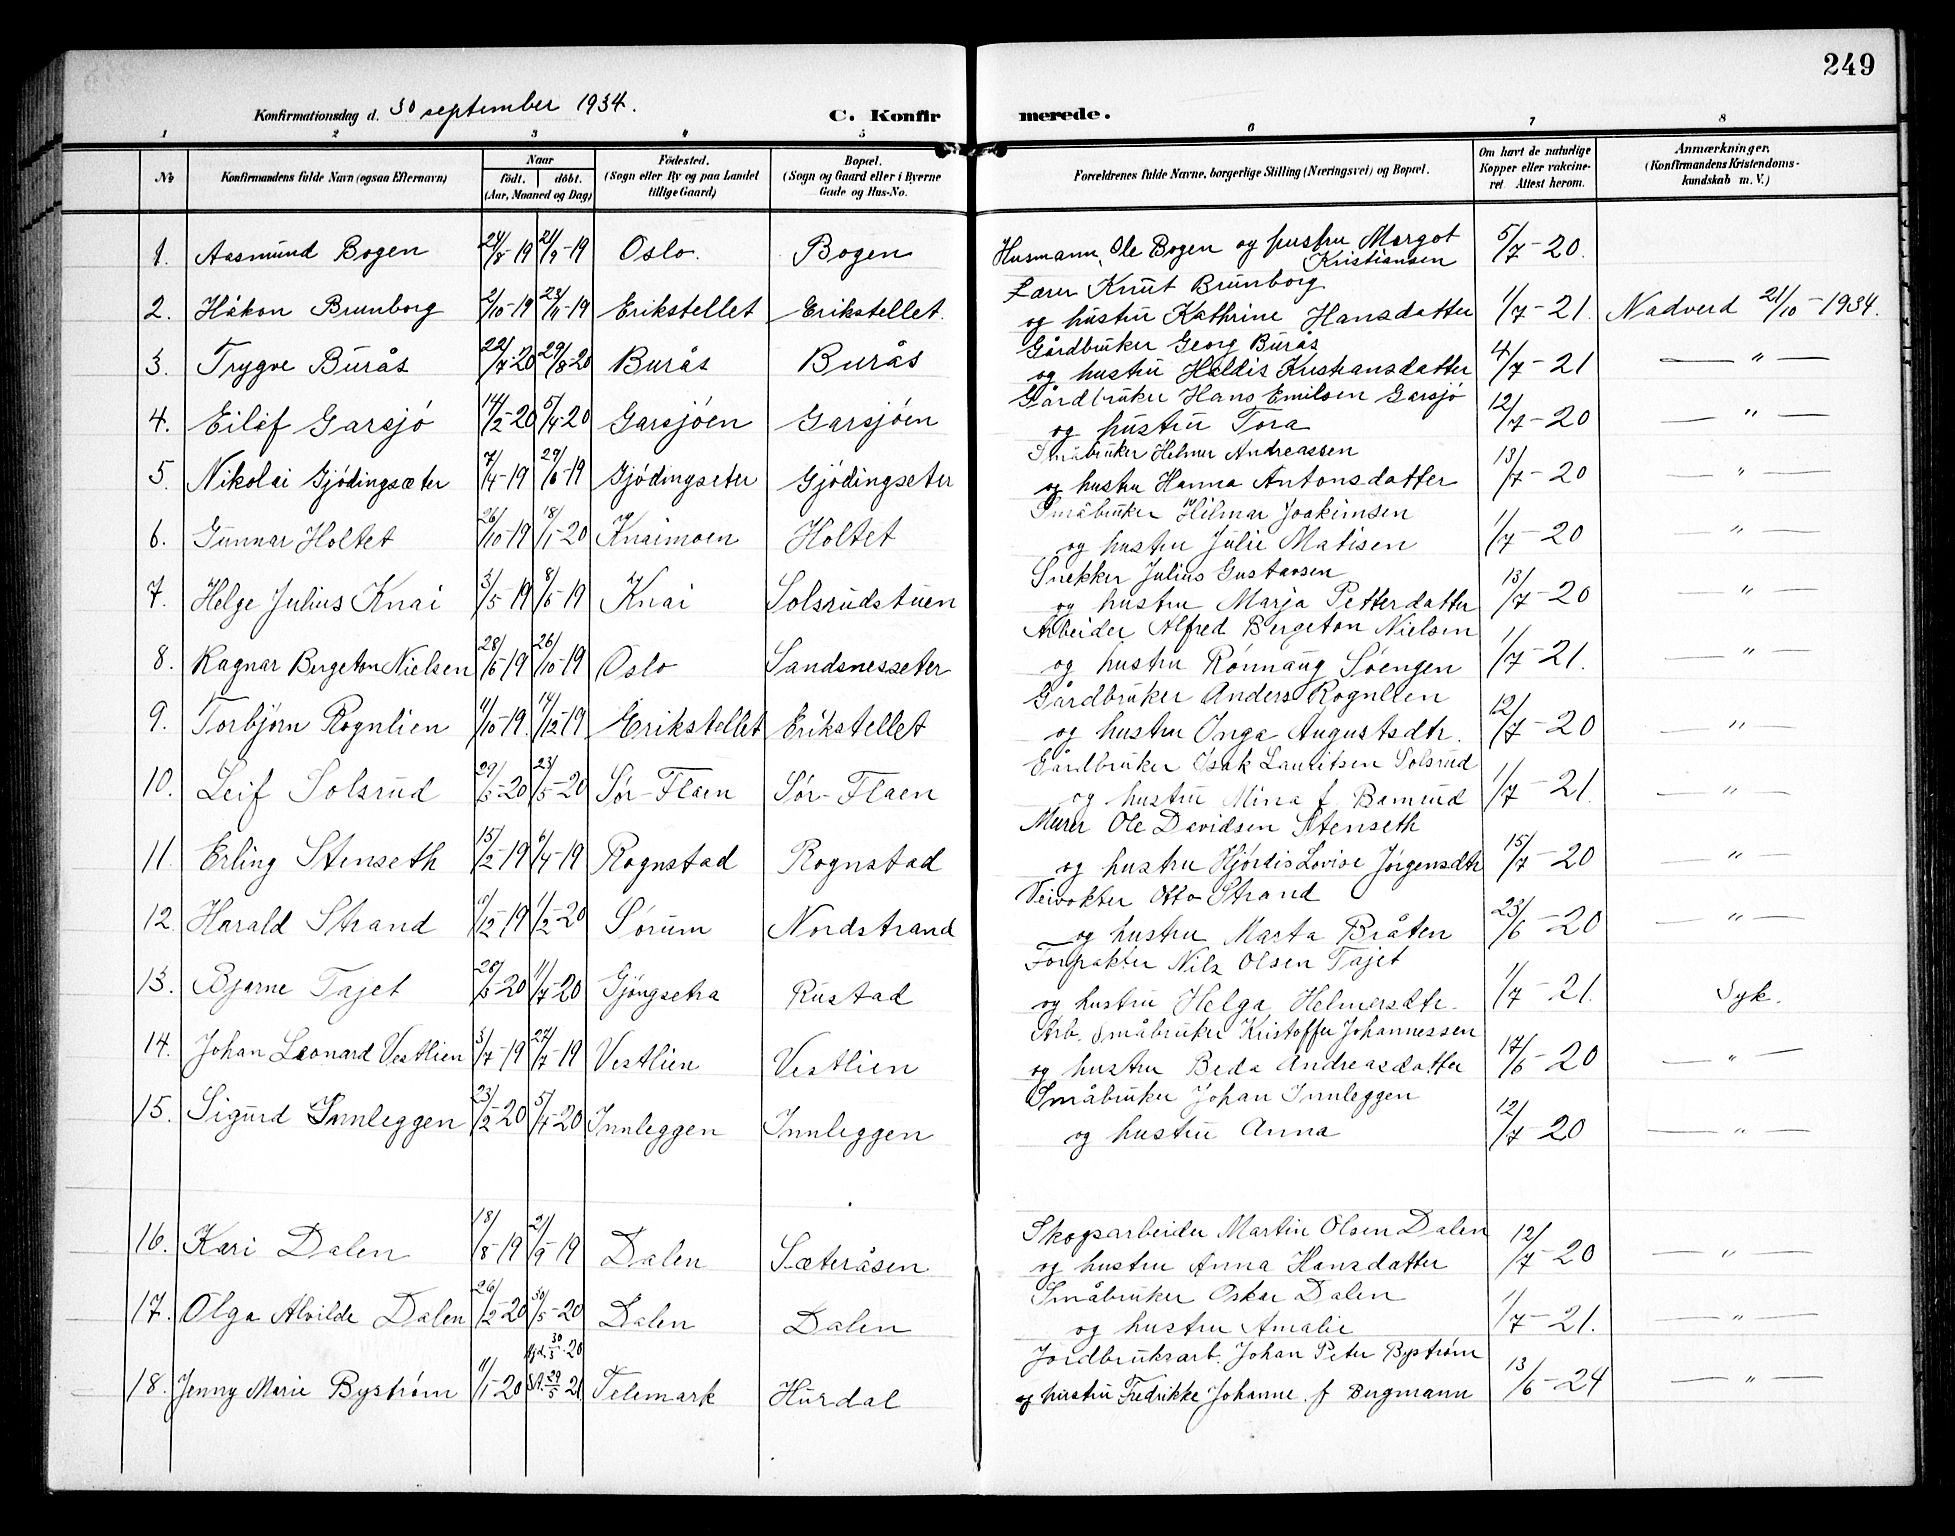 249
Konfirmationsdag d. 30 september 1934. C. Konfirmerede.
1 2 3 4 5 6 7 8
No Konfirmandens fulde Navn (ogsaa Efternavn) Naar født. døbt. (Aar, Maaned og Dag) Fødested. (Sogn eller By og paa Landet tillige Gaard) Bopæl. (Sogn og Gaard eller i Byerne Gade og Hus-No. Forældrenes fulde Navne, borgerlige Stilling (Næringsvei) og Bopæl. Om havt de naturlige Kopper eller vakcineret. Attest herom. Anmærkninger. (Konfirmandens Kristendomskundskab m. V.)
1. Aasmund Bogen 24/8-19 21/9-19 Oslo. Bogen Husmann, Ole Bogen og hustru Margot Kristiansen 5/7-20.
2. Håkon Brunborg 2/10-19 23/11-19 Erikstellet Erikstellet. Lærer Knut Brunborg
og hustru Kathrine Hansdatter 1/7-21. Nadverd 21/10-1934.
3. Trygve Burås 22/7-20 29/8-20 Burås Burås Gårdbruker Georg Burås
og hustru Haldis Kristiansdatter 4/7-21 — " —
4. Eilif Garsjö 14/2-20 5/4-20 Garsjöen Garsjöen Gårdbruker Hans Emilsen Garsjö
og hustru Tora 12/7-20 — " —
5. Nikolai Gjödingsæter 7/4-19 29/6-19 Gjödingseter Gjödingseter Småbruker Helmer Andreassen
og hustru Hanna Antonsdatter 13/7-20 — " —
6. Gunnar Holtet 26/10-19 18/1-20 Knaimoen Holtet Småbruker Hilmar Joakimsen
og hustru Julie Matisen 1/7-20 — " —
7. Helge Julius Knai 3/5-19 8/6-19 Knai Solsrudstuen Snekker Julius Gustavsen
og hustru Marja Petterdatter 13/7-20 — " —
8. Ragnar Bergeton Nielsen 28/6-19 26/10-19 Oslo Sandsnesseter Arbeider Alfred Bergeton Nielsen
og hustru Rönnaug Söengen 1/7-21. — " —
9. Torbjørn Rognlien 11/10-19. 14/12-19 Erikstellet Erikstellet Gårdbruker Anders Rognlien
og hustru Inga Augustsdtr. 12/7-20 — " —
10. Leif Solsrud 29/3-20 23/5-20 Sör-Flaen Sör-Flaen Gårdbruker Isak Lauritsen Solsrud
og hustru Mina f 1/7-21. — " —
11. Erling Stenseth 15/2-19 6/4-19 Rognstad Rognstad Murer Ole Davidsen Stenseth
og hustru Hjördis Lovise Jörgensdtr 15/7-20 — " —
12. Harald Strand /12-19 1/2-20 Sörum Nordstrand Veivokter Otto Strand
og hustru Marta Bråten 23/6-20 — " —
13. Bjarne Tajet 28/3-20 11/7-20 Gjöngsetra Rustad Forpakter Nils Olsen Tajet
og hustru Helga Helmersdtr. 1/7-21. Syk.
14. Johan Leonard Vestlien 3/7-19 27/7-19 Vestlien Vestlien Arb. småbruker Kristoffer Johannessen
og hustru Beda Andreasdatter 17/6-20 — " —
15. Sigurd Innleggen 23/2-20 5/4-20 Innleggen Innleggen Småbruker Johan Innleggen
og hustru Anna 12/7-20 — " —
16. Kari Dalen 18/8-19 21/9-19 Dalen Sæteråsen Skogsarbeider Martin Olsen Dalen
og hustru Anna Hansdatter 12/7-20 — " —
17. Olga Alvilde Dalen 26/2-20 30/5-20 Dalen Dalen Småbruker Oskar Dalen
og hustru Amalie 1/7-21. — " —
18. Jenny Marie Bystrøm 11/1-20 30/3-20 29/5 21 Telemark Hurdal Jordbruksarb. Johan Peter Bystrøm
og hustru Fredrikke Johanne f Bugmann 13/6-24 — " —